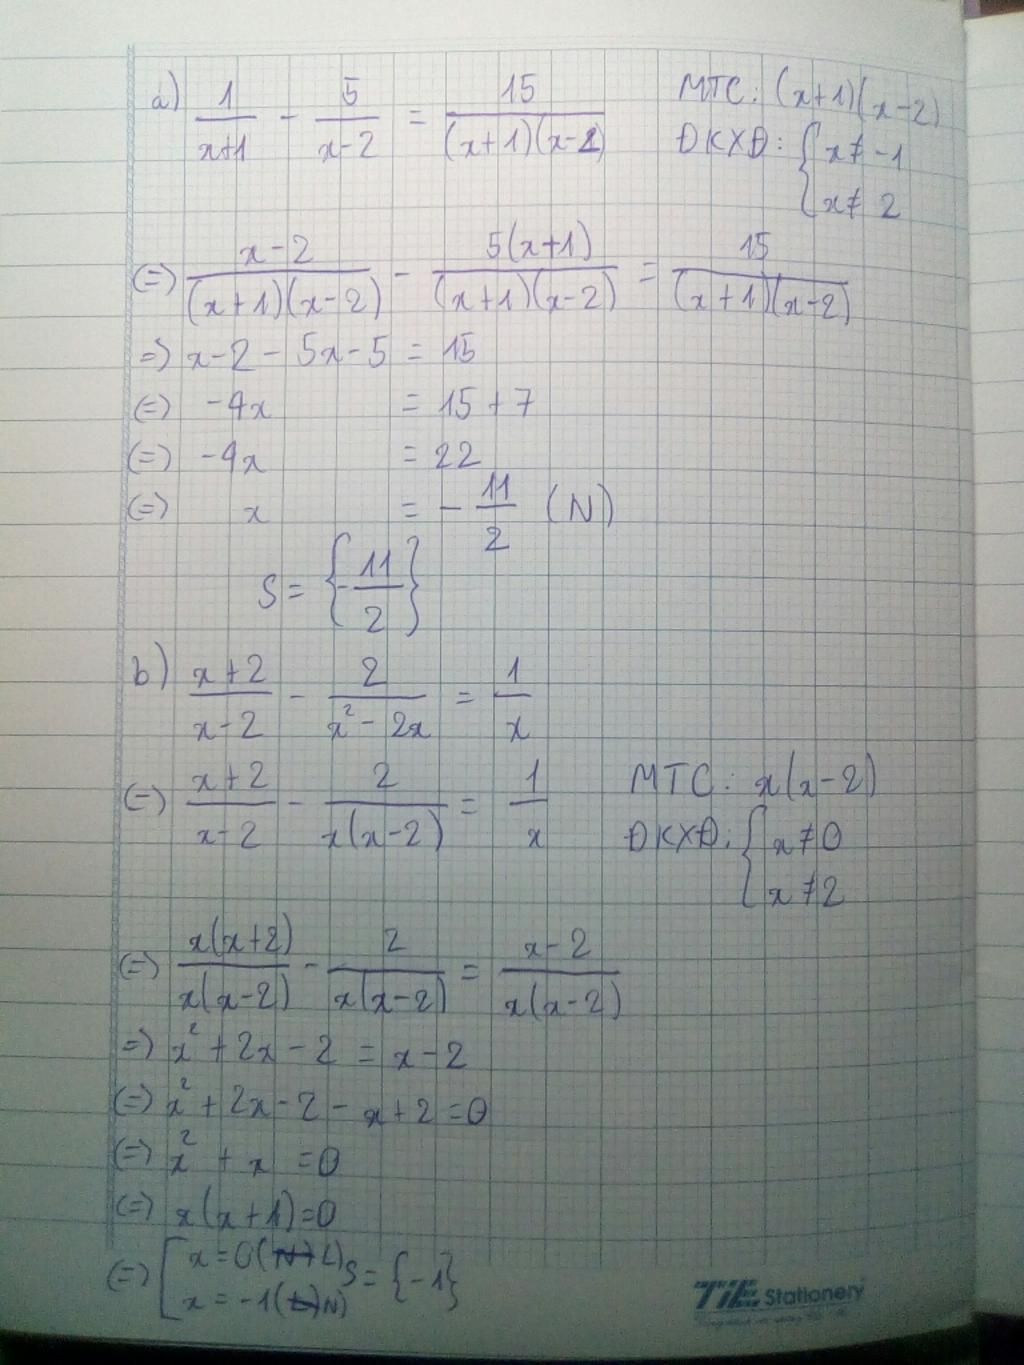 a) 1/(x+1) - 5/(x-2) = 15/((x+1)(x-2)) MTC: (x+1)(x-2)
ĐKXĐ: { x ≠ -1
x ≠ 2
(=) (x-2)/((x+1)(x-2)) - 5(x+1)/((x+1)(x-2)) = 15/((x+1)(x-2))
=) x-2 - 5x-5 = 15
(=) -4x = 15+7
(=) -4x = 22
(=) x = -11/2 (N)
S = {-11/2}
b) (x+2)/(x-2) - 2/(x²-2x) = 1/x
(=) (x+2)/(x-2) - 2/(x(x-2)) = 1/x MTC: x(x-2)
ĐKXĐ: { x ≠ 0
x ≠ 2
(=) x(x+2)/(x(x-2)) - 2/(x(x-2)) = (x-2)/(x(x-2))
=) x²+2x-2 = x-2
(=) x²+2x-2-x+2=0
(=) x²+x=0
(=) x(x+1)=0
(=) [ x=0(L) S={-1}
x=-1(N)
TiE Stationery